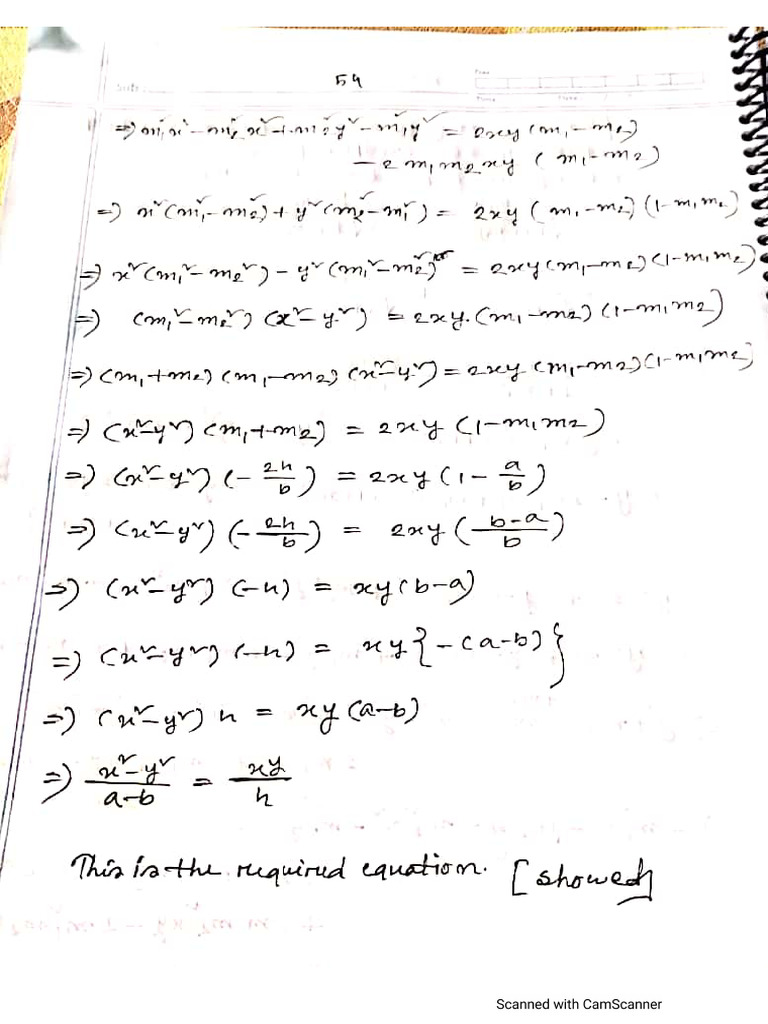 54
⇒ m₁²x² - m₂²x² + m₂²y² - m₁²y² = 2xy (m₁ - m₂)
- 2 m₁m₂xy (m₁ - m₂)
⇒ x² (m₁² - m₂²) + y² (m₂² - m₁²) = 2xy (m₁ - m₂) (1 - m₁m₂)
⇒ x² (m₁² - m₂²) - y² (m₁² - m₂²) = 2xy (m₁ - m₂) (1 - m₁m₂)
⇒ (m₁² - m₂²) (x² - y²) = 2xy. (m₁ - m₂) (1 - m₁m₂)
⇒ (m₁ + m₂) (m₁ - m₂) (x² - y²) = 2xy (m₁ - m₂) (1 - m₁m₂)
⇒ (x² - y²) (m₁ + m₂) = 2xy (1 - m₁m₂)
⇒ (x² - y²) (- 2h/b) = 2xy (1 - a/b)
⇒ (x² - y²) (- 2h/b) = 2xy (b-a/b)
⇒ (x² - y²) (-h) = xy (b-a)
⇒ (x² - y²) (-h) = xy {-(a-b)}
⇒ (x² - y²) h = xy (a-b)
⇒ x² - y²/a-b = xy/h
This is the required equation. [showed]
Scanned with CamScanner